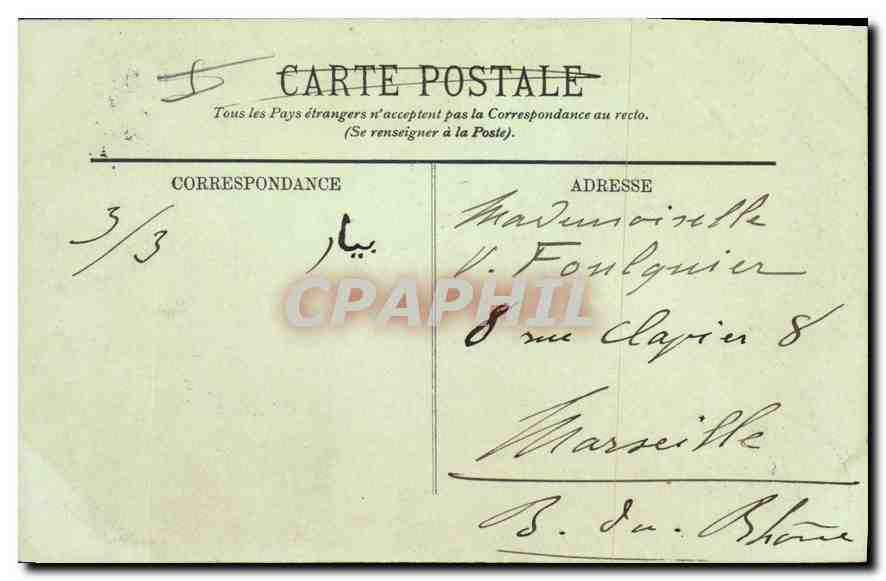 CARTE POSTALE
Tous les Pays étrangers n'acceptent pas la Correspondance au recto.
(Se renseigner à la Poste).
CORRESPONDANCE
3/3 بيار
CPAPHIL
ADRESSE
Mademoiselle
V. Foulquier
8 rue Clapier 8
Marseille
B. du. Rhône